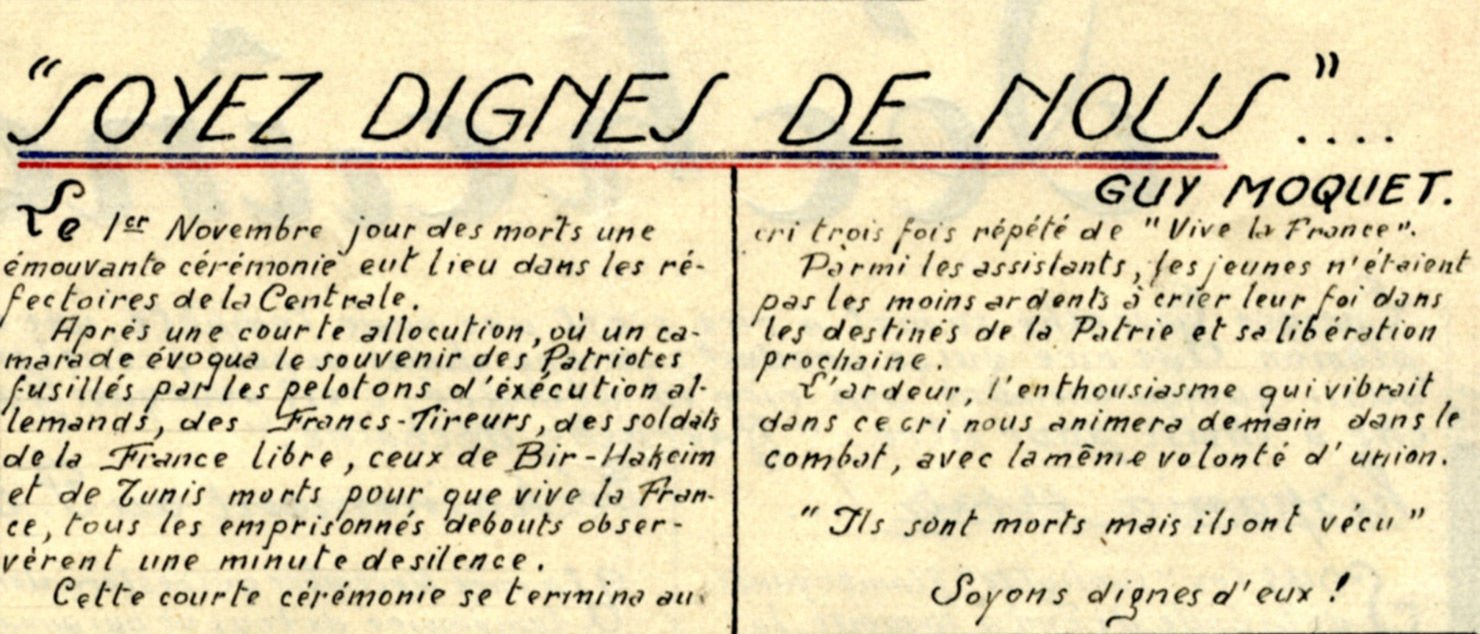 "SOYEZ DIGNES DE NOUS"....
GUY MOQUET.
Le 1er Novembre jour des morts une
émouvante cérémonie eut lieu dans les ré-
fectoires de la Centrale.
Après une courte allocution, où un ca-
marade évoqua le souvenir des Patriotes
fusillés par les pelotons d'éxécution al-
lemands, des Francs-Tireurs, des soldats
de la France libre, ceux de Bir-Hakeim
et de Tunis morts pour que vive la Fran-
ce, tous les emprisonnés debouts obser-
vèrent une minute de silence.
Cette courte cérémonie se termina au
cri trois fois répété de "Vive la France".
Parmi les assistants, les jeunes n'étaient
pas les moins ardents à crier leur foi dans
les destinés de la Patrie et sa libération
prochaine.
L'ardeur, l'enthousiasme qui vibrait
dans ce cri nous animera demain dans le
combat, avec la même volonté d'union.
"Ils sont morts mais ils ont vécu"
Soyons dignes d'eux !